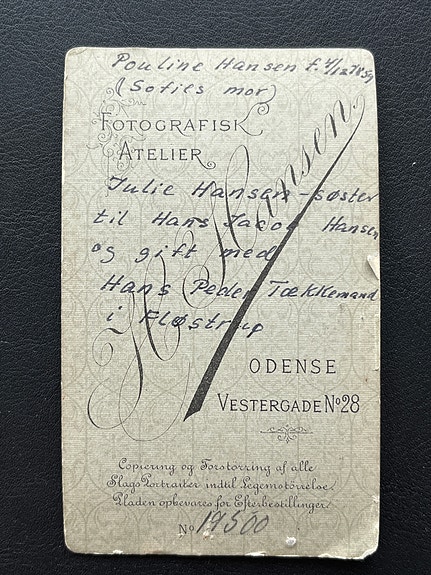 Pouline Hansen f. 4/12 1859
(Sofies mor)
FOTOGRAFISK
ATELIER
H. Hansen.
Julie Hansen - søster
til Hans Jacob Hansen
og gift med
Hans Peder Tækkemand
i Fløstrup
ODENSE
VESTERGADE No 28
Copiering og Forstörring af alle
Slags Portraiter indtil Legemstörrelse.
Pladen opbevares for Efterbestillinger.
No 19500